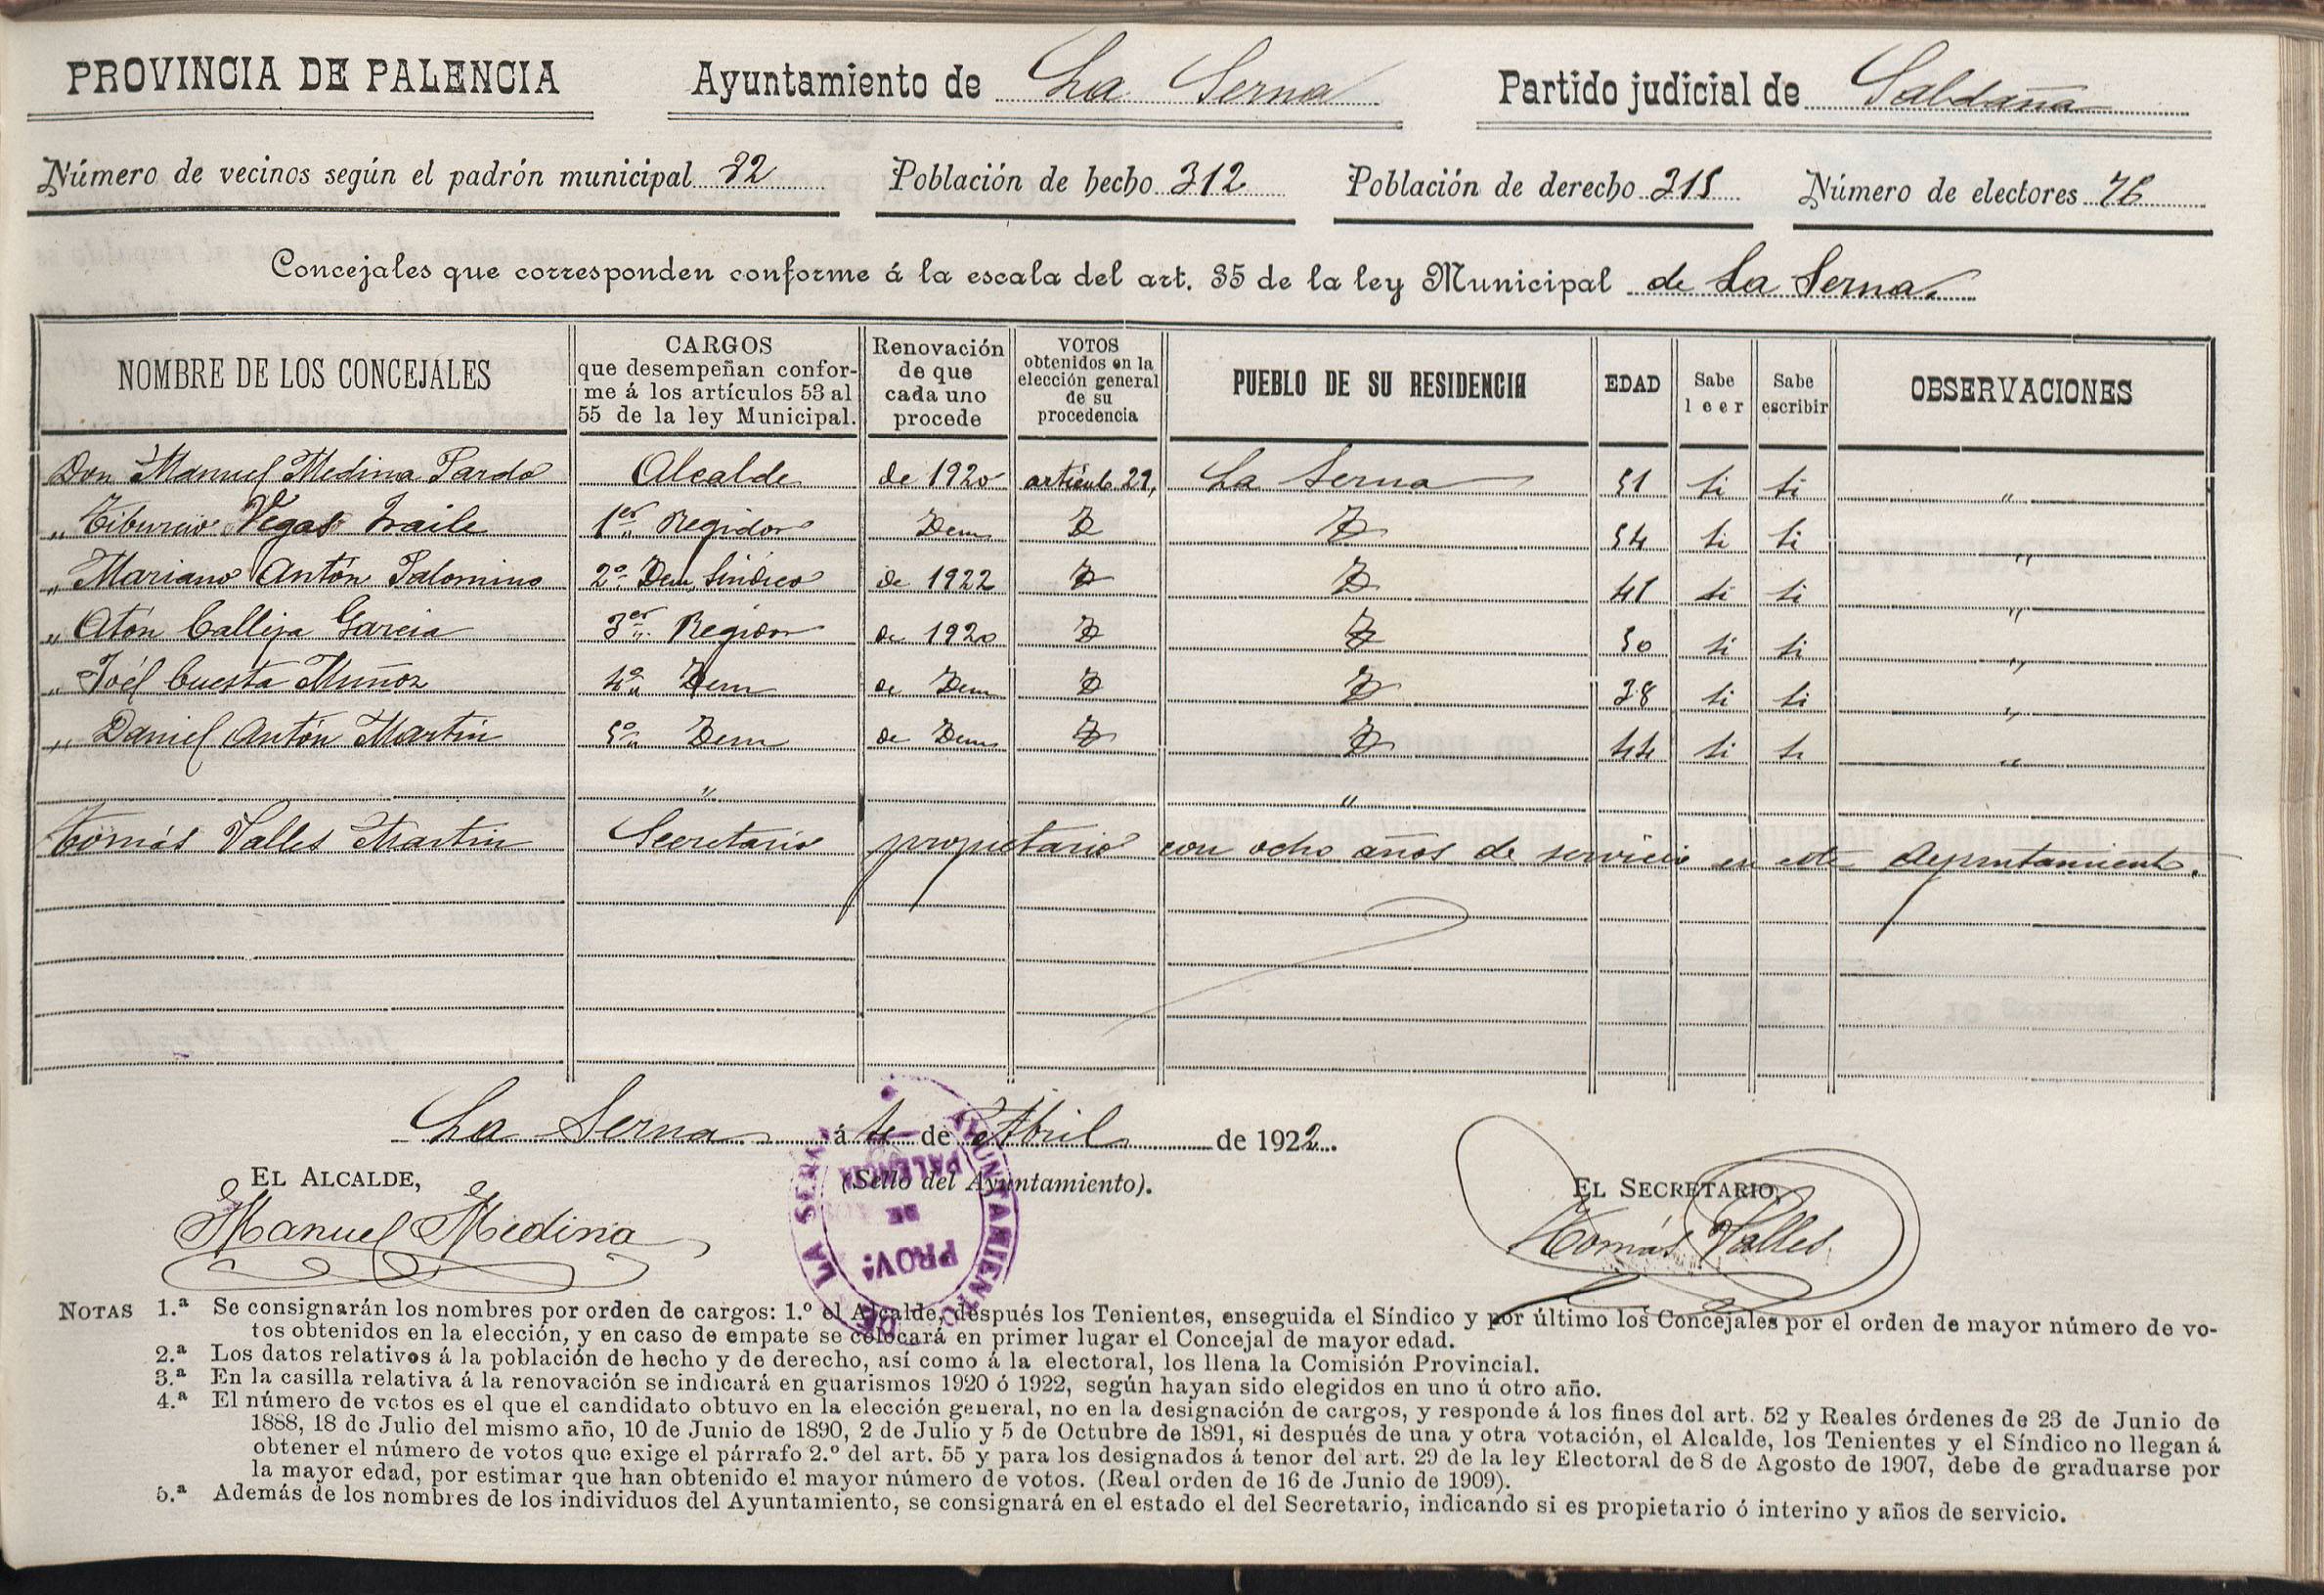 PROVINCIA DE PALENCIA Ayuntamiento de La Serna Partido judicial de Saldaña
Número de vecinos según el padrón municipal 82 Población de hecho 312 Población de derecho 315 Número de electores 76
Concejales que corresponden conforme á la escala del art. 35 de la ley Municipal de La Serna.
NOMBRE DE LOS CONCEJALES CARGOS que desempeñan confor- me á los artículos 53 al 55 de la ley Municipal. Renovación de que cada uno procede VOTOS obtenidos en la elección general de su procedencia PUEBLO DE SU RESIDENCIA EDAD Sabe leer Sabe escribir OBSERVACIONES
Don Manuel Medina Pardo Alcalde de 1920 artículo 29, La Serna 51 si si "
" Tiburcio Vegas Fraile 1er Regidor Dem D D 54 si si "
" Mariano Antón Palomino 2º Dem, Síndico de 1922 D D 41 si si "
" Atón Calleja Garcia 3er Regidor de 1920 D D 50 si si "
" Joél Cuesta Muñoz 4º Dem de Dem D D 38 si si "
" Daniel Antón Martín 5º Dem de Dem D D 44 si si "
" "
Tomás Valles Martin Secretario propietario con ocho años de servicio en este Ayuntamiento.
La Serna á 1º de Abril de 1922.
EL ALCALDE, (Sello del Ayuntamiento). EL SECRETARIO,
Manuel Medina Tomás Valles
AYUNTAMIENTO DE LA SERNA
PROV.ª DE PALENCIA
NOTAS 1.ª Se consignarán los nombres por orden de cargos: 1.º el Alcalde, después los Tenientes, enseguida el Síndico y por último los Concejales por el orden de mayor número de vo-
tos obtenidos en la elección, y en caso de empate se colocará en primer lugar el Concejal de mayor edad.
2.ª Los datos relativos á la población de hecho y de derecho, así como á la electoral, los llena la Comisión Provincial.
3.ª En la casilla relativa á la renovación se indicará en guarismos 1920 ó 1922, según hayan sido elegidos en uno ú otro año.
4.ª El número de votos es el que el candidato obtuvo en la elección general, no en la designación de cargos, y responde á los fines del art. 52 y Reales órdenes de 23 de Junio de
1888, 18 de Julio del mismo año, 10 de Junio de 1890, 2 de Julio y 5 de Octubre de 1891, si después de una y otra votación, el Alcalde, los Tenientes y el Síndico no llegan á
obtener el número de votos que exige el párrafo 2.º del art. 55 y para los designados á tenor del art. 29 de la ley Electoral de 8 de Agosto de 1907, debe de graduarse por
la mayor edad, por estimar que han obtenido el mayor número de votos. (Real orden de 16 de Junio de 1909).
5.ª Además de los nombres de los individuos del Ayuntamiento, se consignará en el estado el del Secretario, indicando si es propietario ó interino y años de servicio.